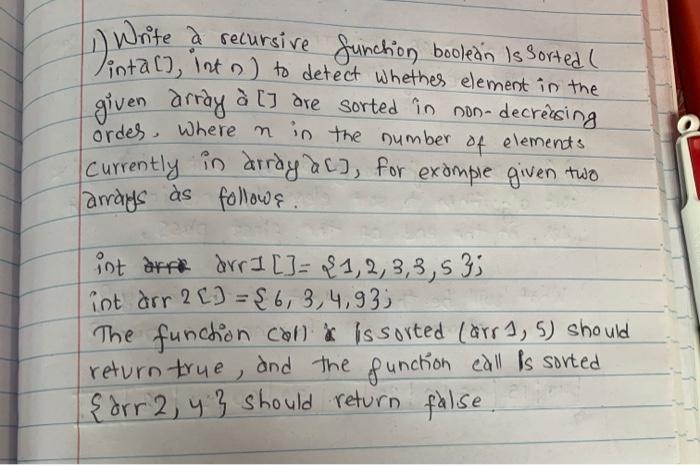 1) Write a recursive function boolean Is Sorted (
int a[], int n) to detect whether element in the
given array a [] are sorted in non-decreasing
order, where n in the number of elements
currently in array a[], for example given two
arrays as follows.
int arr1 []= {1,2,3,3,5};
int arr 2 [] = {6, 3, 4, 9};
The function call is sorted (arr 1, 5) should
return true, and the function call Is sorted
{arr 2, 4} should return false.